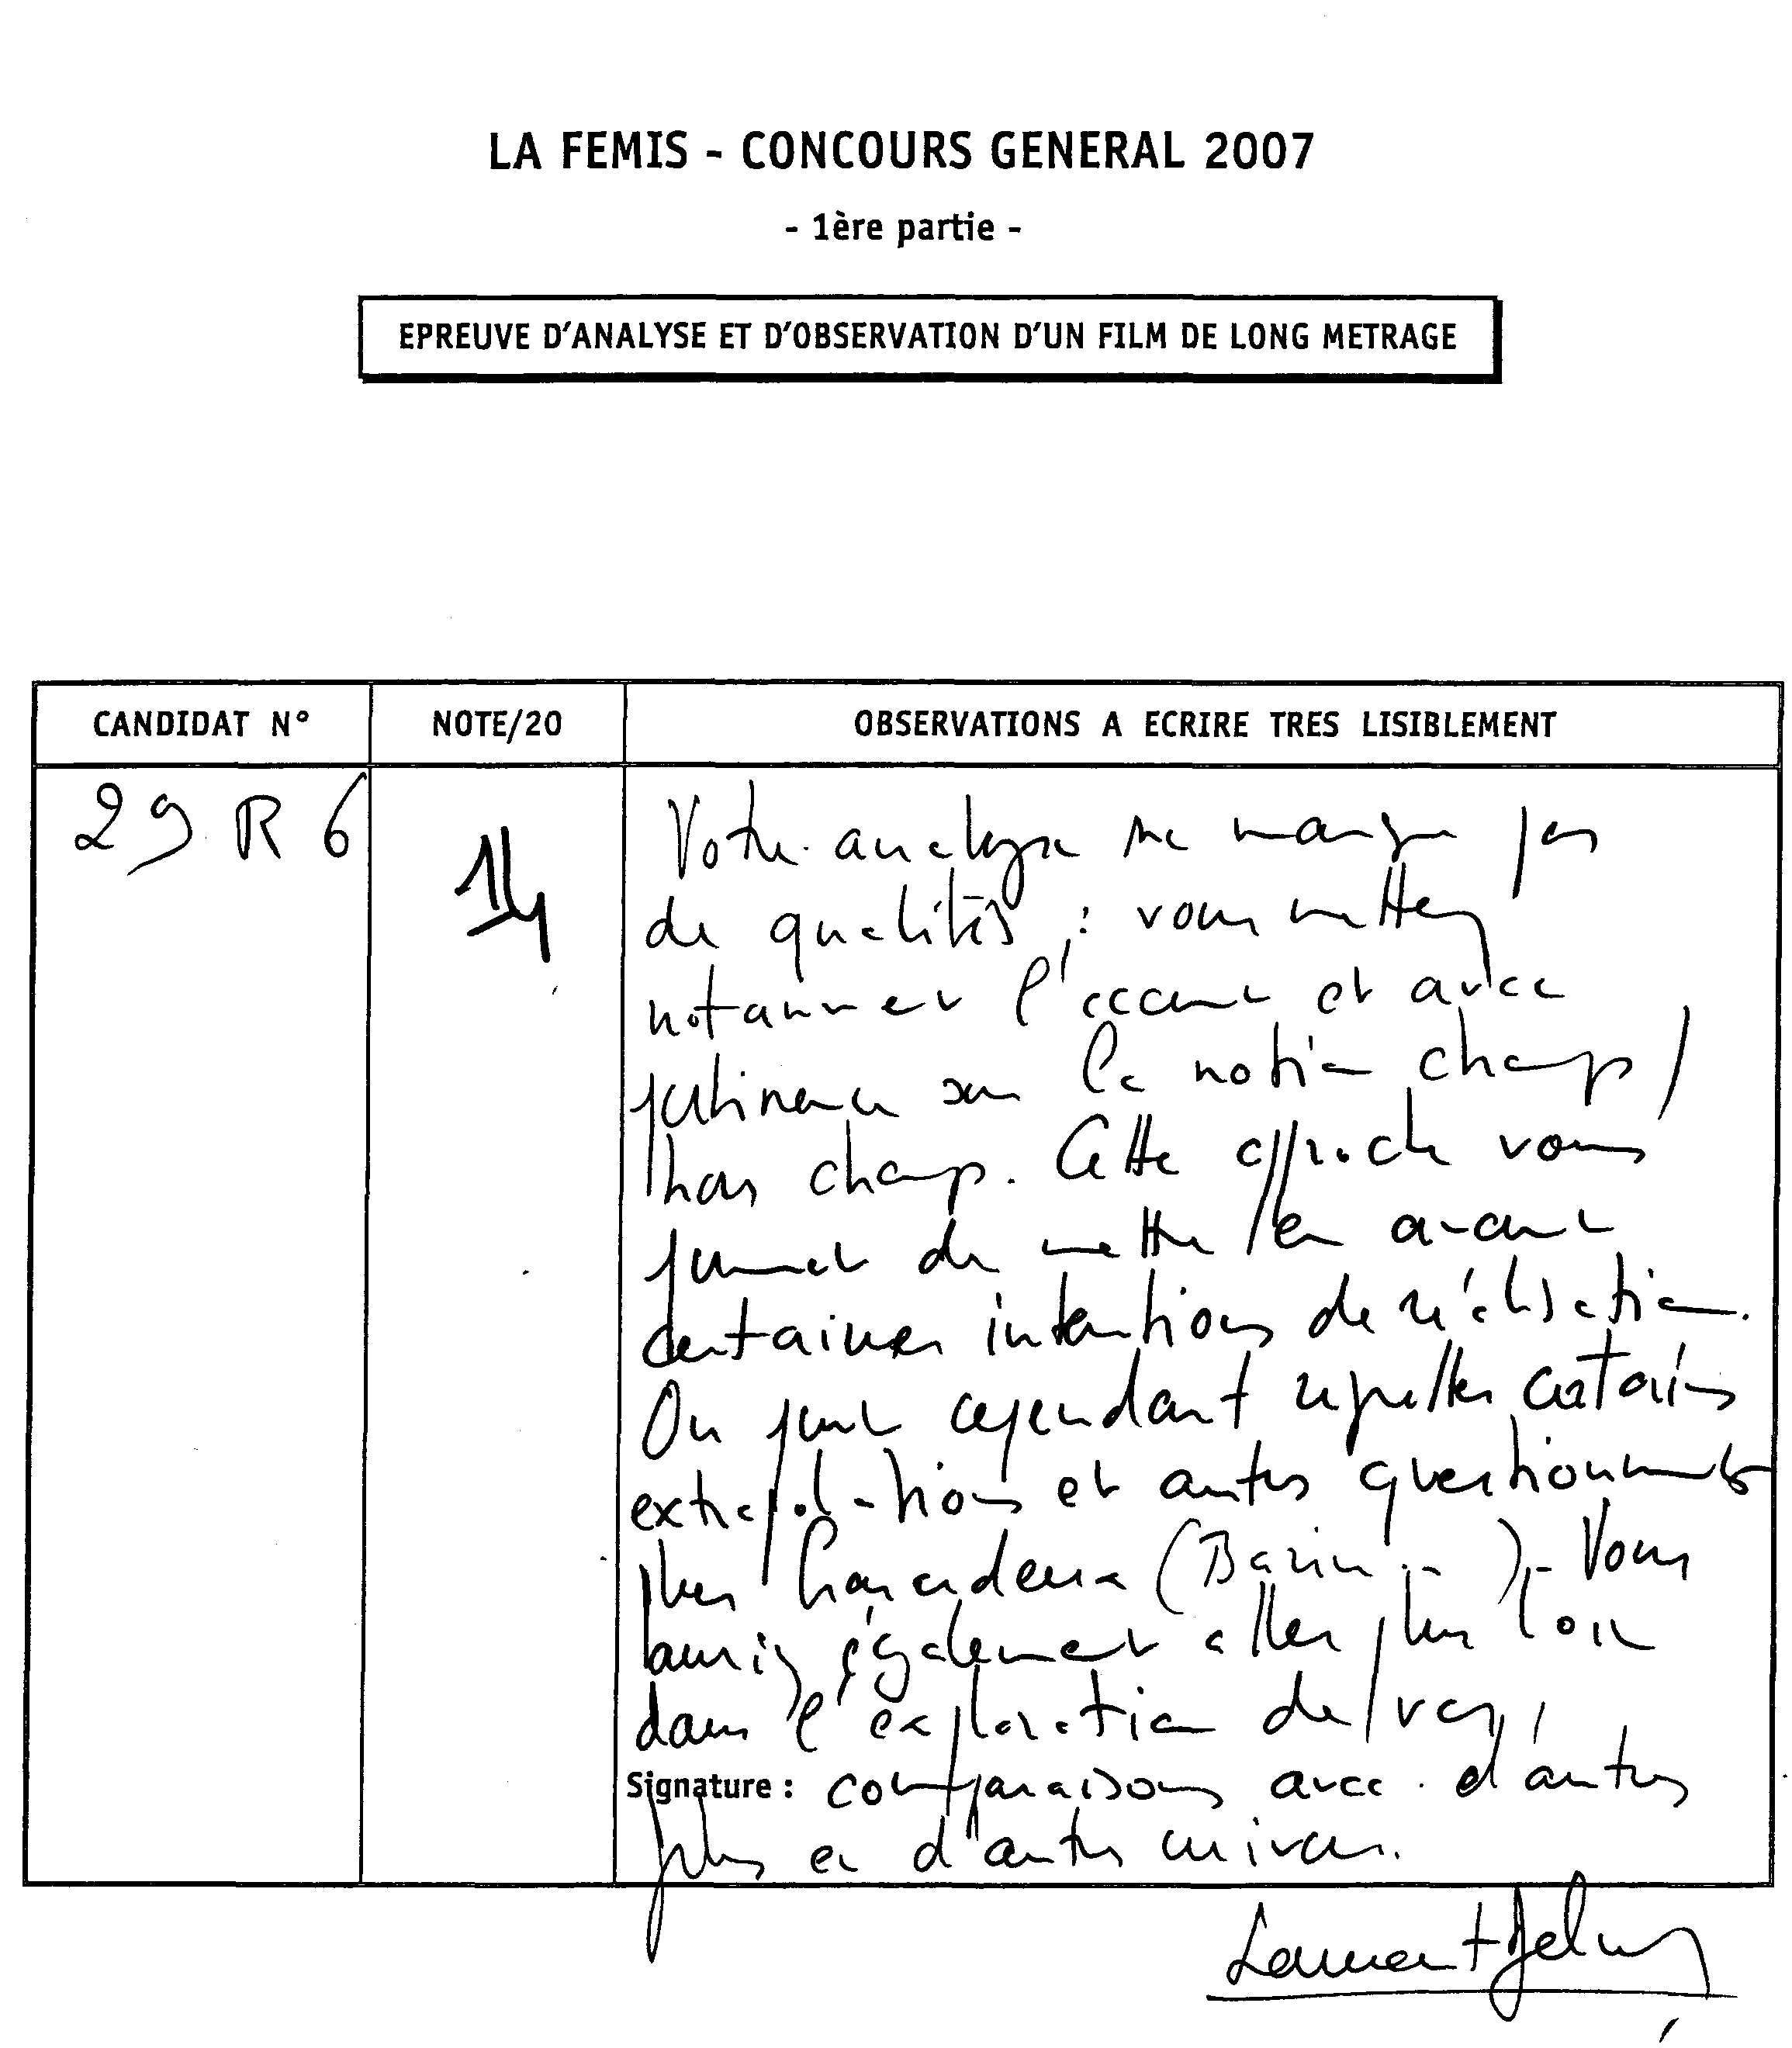 LA FEMIS - CONCOURS GENERAL 2007
- 1ère partie -
EPREUVE D'ANALYSE ET D'OBSERVATION D'UN FILM DE LONG METRAGE
CANDIDAT N° NOTE/20 OBSERVATIONS A ECRIRE TRES LISIBLEMENT
29 R 6 14 Votre analyse ne manque pas
de qualités : vous mettez
notamment l'accent et avec
pertinence sur la notion champ /
hors champ. Cette approche vous
permet de mettre en avant
certaines intentions de réalisation.
On peut cependant regretter certaines
extrapolations et autres questionnements
plus hasardeux (Bazin...). Vous
auriez également aller plus loin
dans l'exploration de vos
Signature : comparaisons avec d'autres
films et d'autres
Laurent